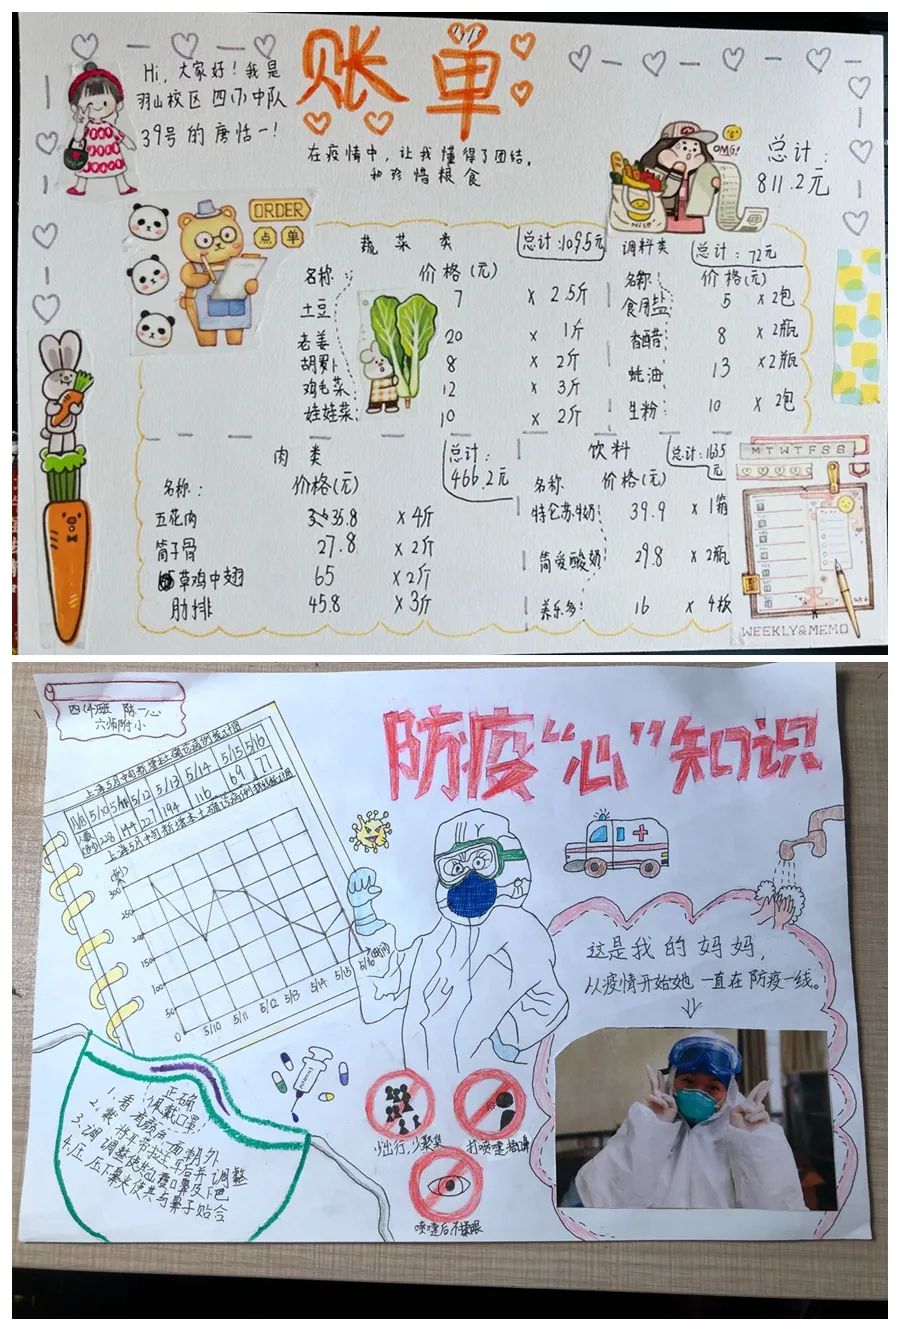 Hi，大家好！我是
羽山校区四(7)中队
39号的唐恬一！
账单
在疫情中，让我懂得了团结，
和珍惜粮食
OMG!
NICE!
总计：
811.2元
ORDER
点单
蔬菜类
总计：109.5元
名称： 价格(元)
土豆 7 x 2.5斤
老姜 20 x 1斤
胡萝卜 8 x 2斤
鸡毛菜 12 x 3斤
娃娃菜 10 x 2斤
调料类
总计：72元
名称： 价格(元)
食用盐 5 x 2包
香醋 8 x 2瓶
蚝油 13 x 2瓶
生粉 10 x 2包
肉类
总计：
466.2元
名称： 价格(元)
五花肉 35.8 x 4斤
筒子骨 27.8 x 2斤
草鸡中翅 65 x 2斤
肋排 45.8 x 3斤
饮料
总计：163.5
元
名称： 价格(元)
特仑苏牛奶 39.9 x 1箱
简爱酸奶 29.8 x 2瓶
养乐多 16 x 4板
MTWTFSS
WEEKLY&MEMO
四(4)班 陈一心
六师附小
防疫“心”知识
5/10 5/11 5/12 5/13 5/14 5/15 5/16
228 144 194 116 69 77
300
250
200
150
100
50
0
5/10 5/11 5/12 5/13 5/14 5/15 5/16
这是我的妈妈，
从疫情开始她一直在防疫一线。
正确
佩戴口罩！
少出行，少聚集
打喷嚏捂鼻
喷嚏后不揉眼